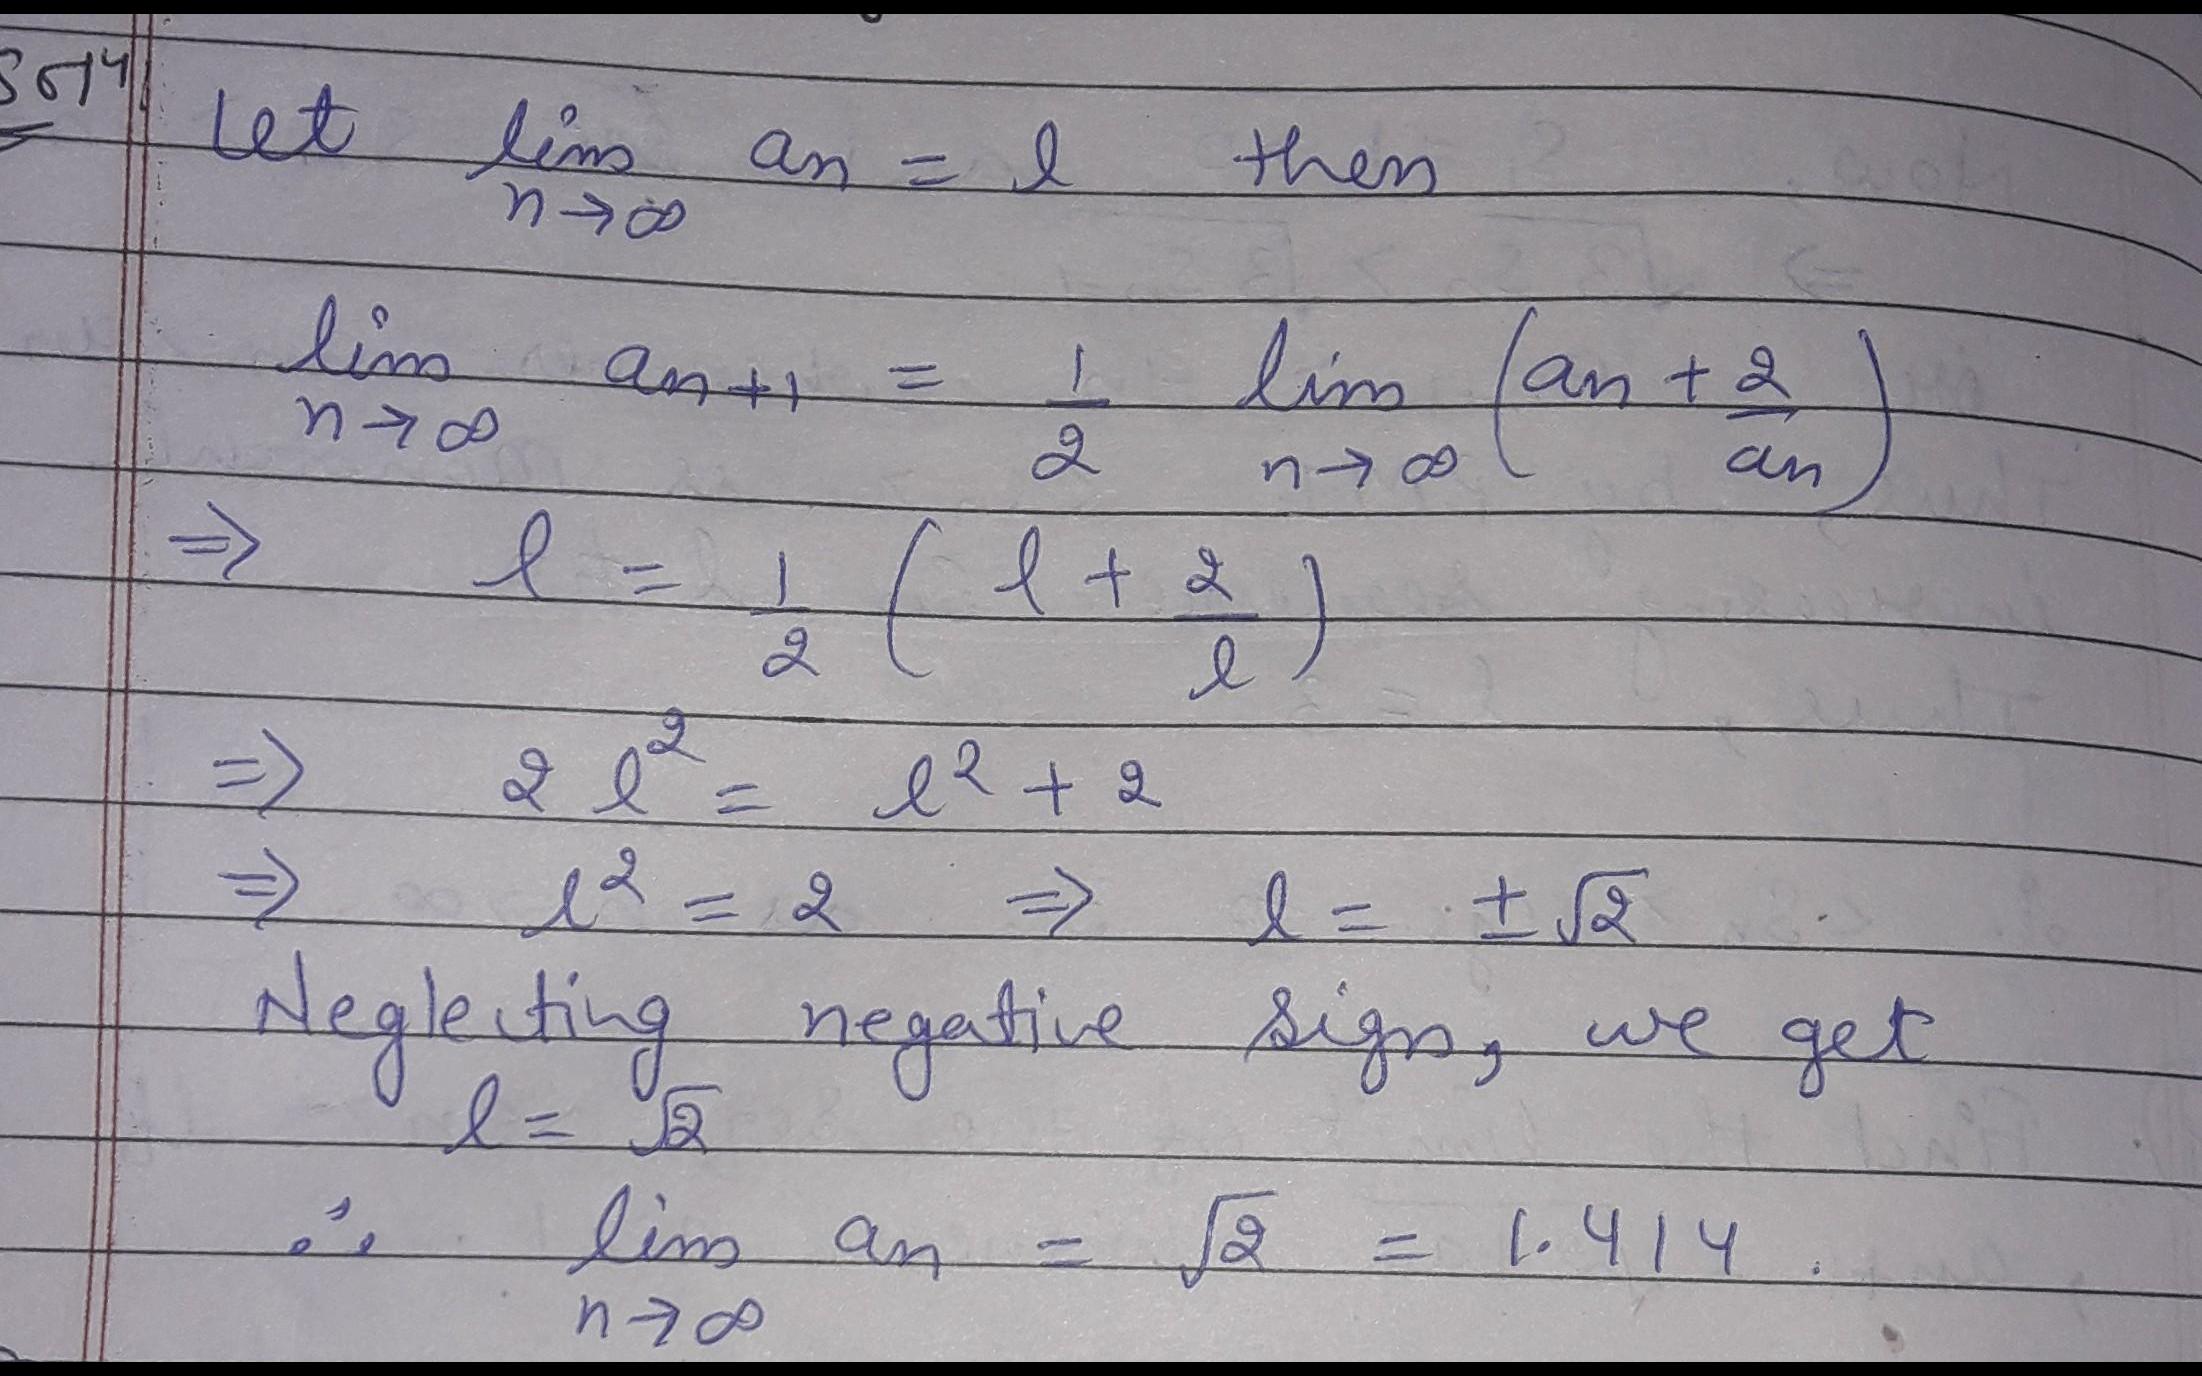 Soln
Let lim n→∞ an = l then
lim n→∞ an+1 = 1/2 lim n→∞ (an + 2/an)
⇒ l = 1/2 (l + 2/l)
⇒ 2l² = l² + 2
⇒ l² = 2 ⇒ l = ±√2
Neglecting negative sign, we get
l = √2
∴ lim n→∞ an = √2 = 1.414.